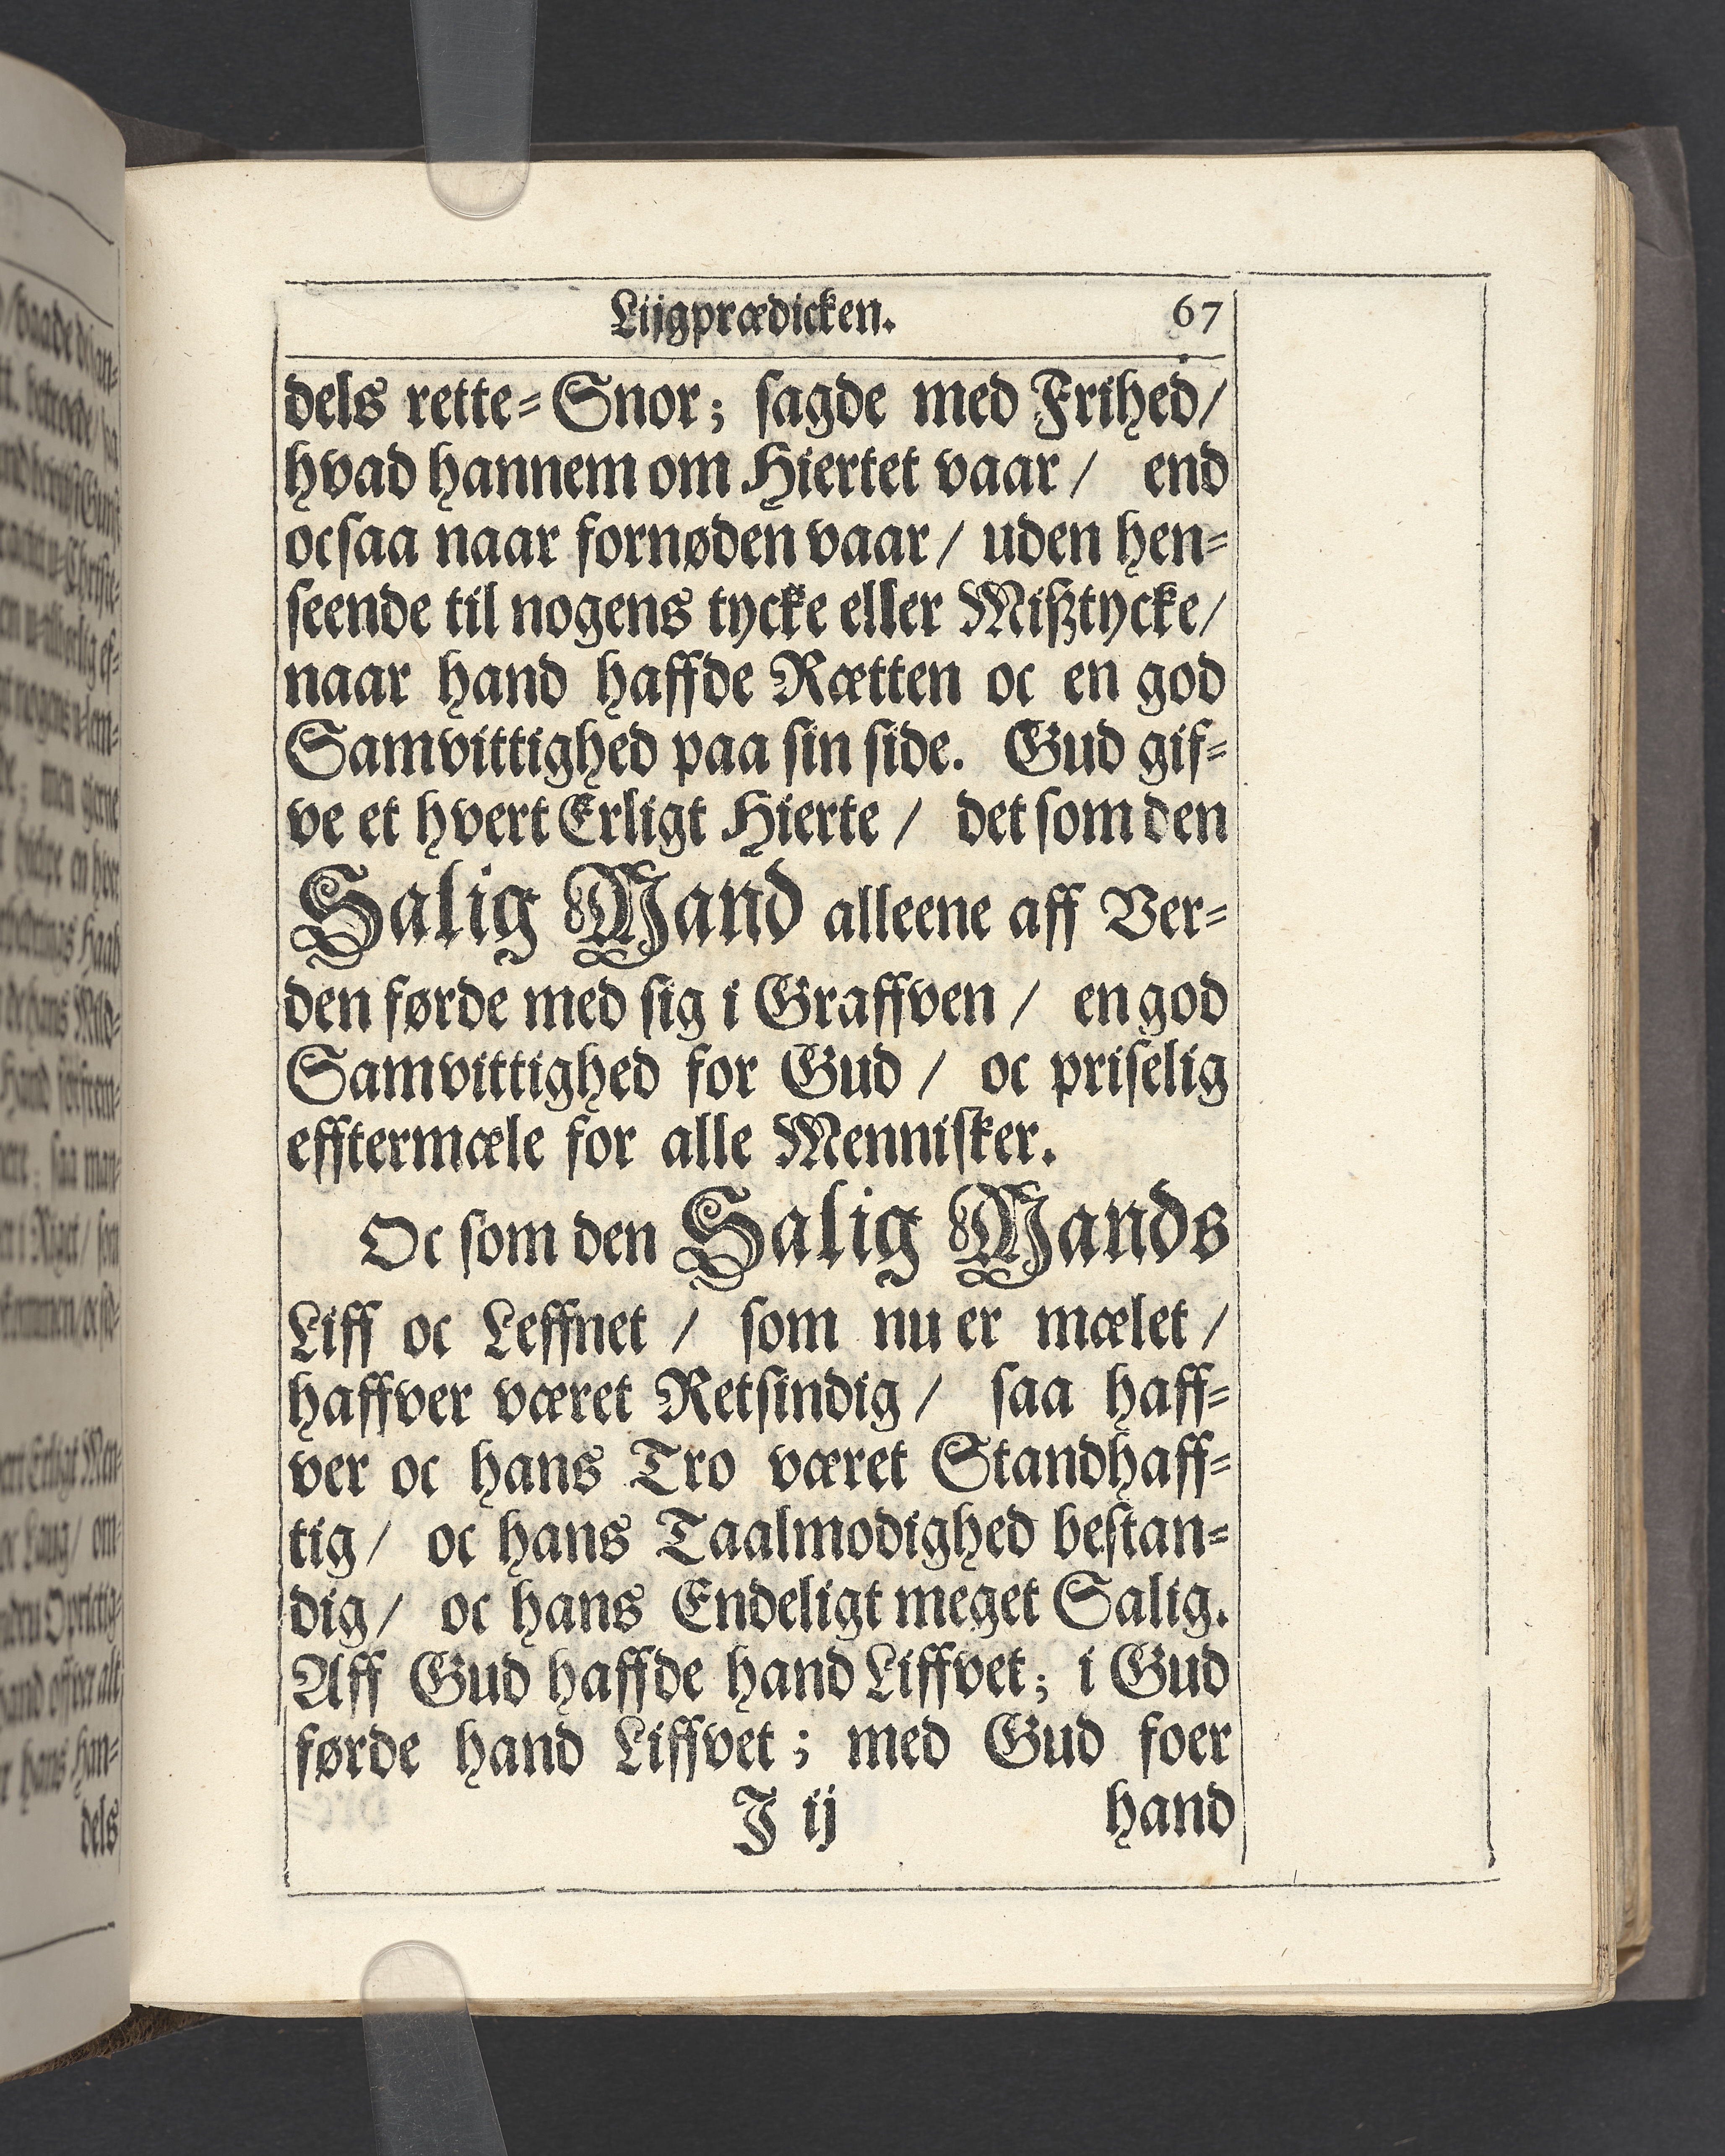 Liigprædicken. 67
dels rette-Snor; sagde med Frihed/
hvad hannem om Hiertet vaar/ end
ocsaa naar fornøden vaar/ uden hen-
seende til nogens tycke eller Mißtycke/
naar hand haffde Rætten oc en god
Samvittighed paa sin side. Gud gif-
ve et hvert Erligt Hierte/ det som den
Salig Mand alleene aff Ver-
den førde med sig i Graffven/ en god
Samvittighed for Gud/ oc priselig
efftermæle for alle Mennisker.
Oc som den Salig Mands
Liff oc Leffnet/ som nu er mælet/
haffver været Retsindig/ saa haff-
ver oc hans Tro været Standhaff-
tig/ oc hans Taalmodighed bestan-
dig/ oc hans Endeligt meget Salig.
Aff Gud haffde hand Liffvet; i Gud
førde hand Liffvet; med Gud foer
J ij hand